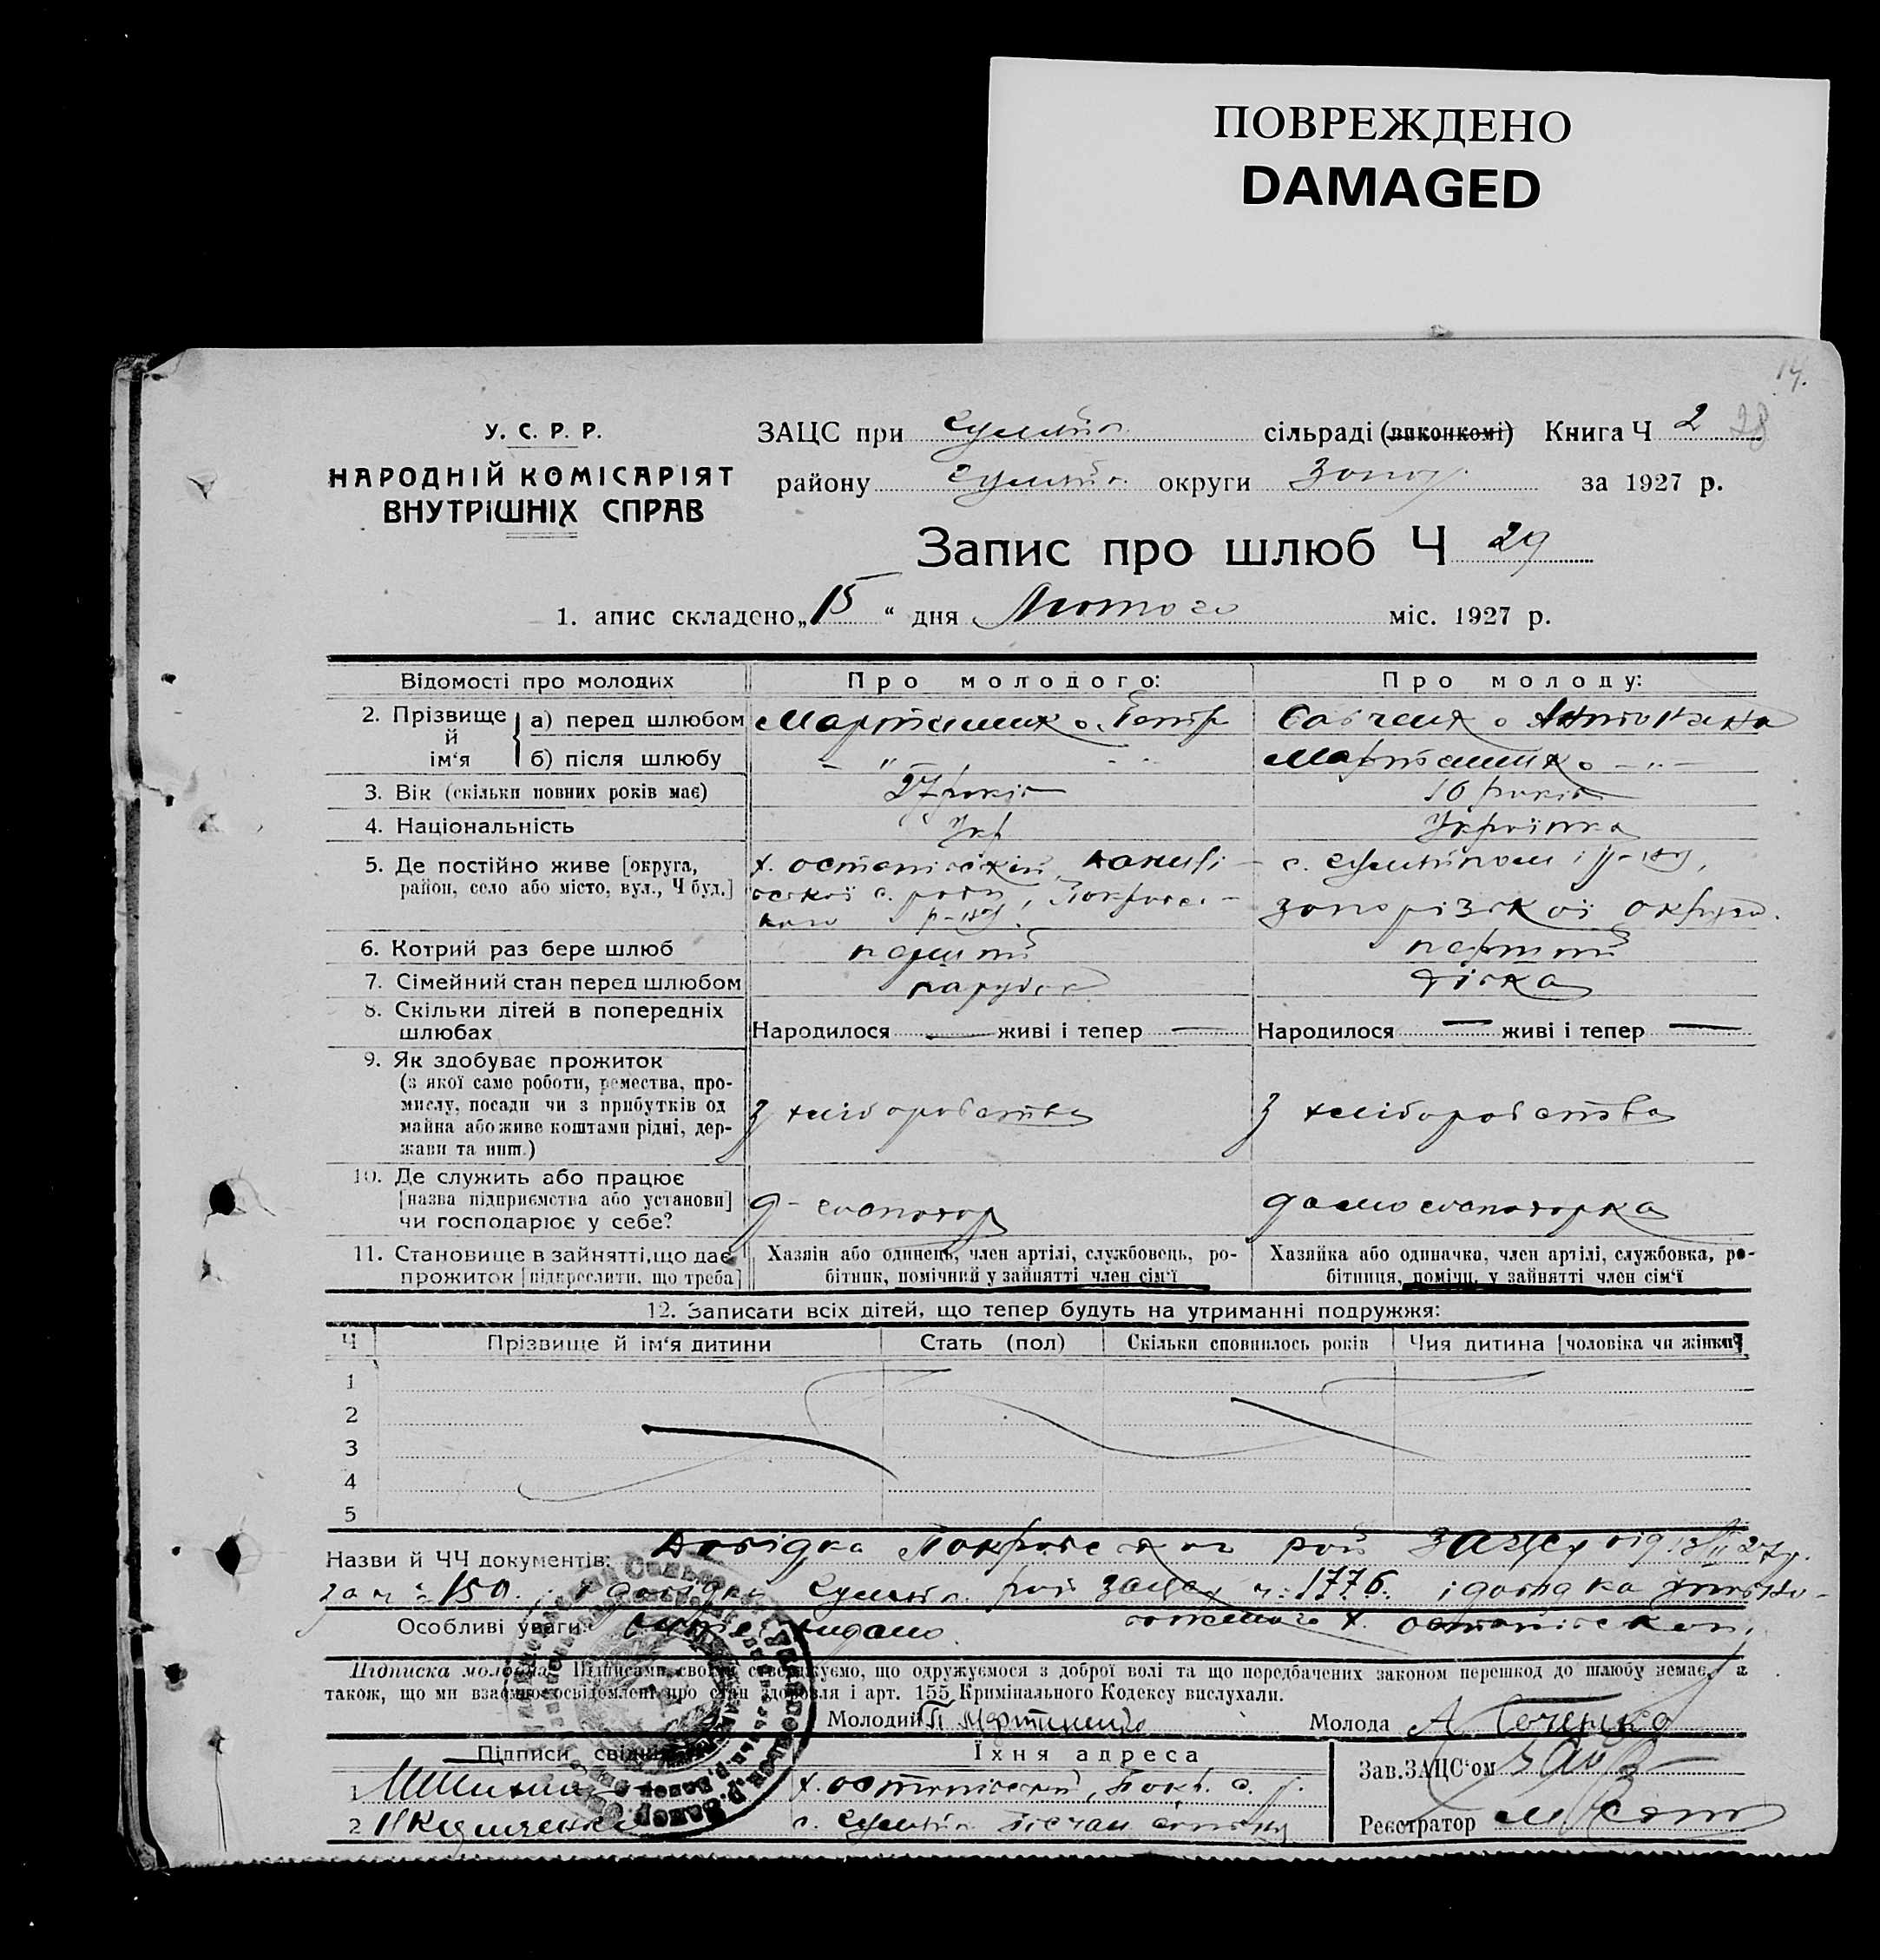 ПОВРЕЖДЕНО
DAMAGED
14.
У. С. Р. Р.
НАРОДНІЙ КОМІСАРІЯТ
ВНУТРІШНІХ СПРАВ
ЗАЦС при сільраді (виконкомі) Книга Ч 2 28
району округи Запор. за 1927 р.
Запис про шлюб Ч 29
1. апис складено „15“ дня Лютого міс. 1927 р.
Відомості про молодих Про молодого: Про молоду:
2. Прізвище й ім‘я а) перед шлюбом Мартиненко Петр Савченко Антонина
б) після шлюбу – „ – Мартиненко – „ –
3. Вік (скільки повних років має) 27 років 16 років
4. Національність Укр Українка
5. Де постійно живе [округа,
район, село або місто, вул., Ч буд.]
х. с. ради, Покровс-
кого р-ну
с. р-ну,
запорізкої округи.
6. Котрий раз бере шлюб перший перший
7. Сімейний стан перед шлюбом парубок дівка
8. Скільки дітей в попередніх
шлюбах
Народилося — живі і тепер — Народилося — живі і тепер —
9. Як здобуває прожиток
(з якої саме роботи, ремества, про-
мислу, посади чи з прибутків од
майна або живе коштами рідні, дер-
жави та инш.)
З хліборобства З хліборобства
10. Де служить або працює
[назва підприємства або установи]
чи господарює у себе?
д-господар домогосподарка
11. Становище в зайнятті, що дає
прожиток [підкреслити, що треба]
Хазяїн або одинець, член артілі, службовець, ро-
бітник, помічний у зайнятті член сім‘ї
Хазяйка або одиначка, член артілі, службовка, ро-
бітниця, помічн. у зайнятті член сім‘ї
12. Записати всіх дітей, що тепер будуть на утриманні подружжя:
Ч Прізвище й ім‘я дитини Стать (пол) Скільки сповнилось років Чия дитина [чоловіка чи жінки]
1
2
3
4
5
Назви й ЧЧ документів: Довідка Покровского рай ЗАЦСу від 13/II 27 р.
за ч. 150. і довідка рай ЗАЦСу ч. 1776. і довідка
Особливі уваги: видано. х.
Підписка молодих: Підписами своїми стверджуємо, що одружуємося з доброї волі та що передбачених законом перешкод до шлюбу немає, а
також, що ми взаємно освідомлені про стан здоровля і арт. 155 Кримінального Кодексу вислухали.
Молодий П Мартиненко Молода А
Підписи свідків Їхня адреса
1 х.
2 с.
Зав. ЗАЦС‘ом
Реєстратор